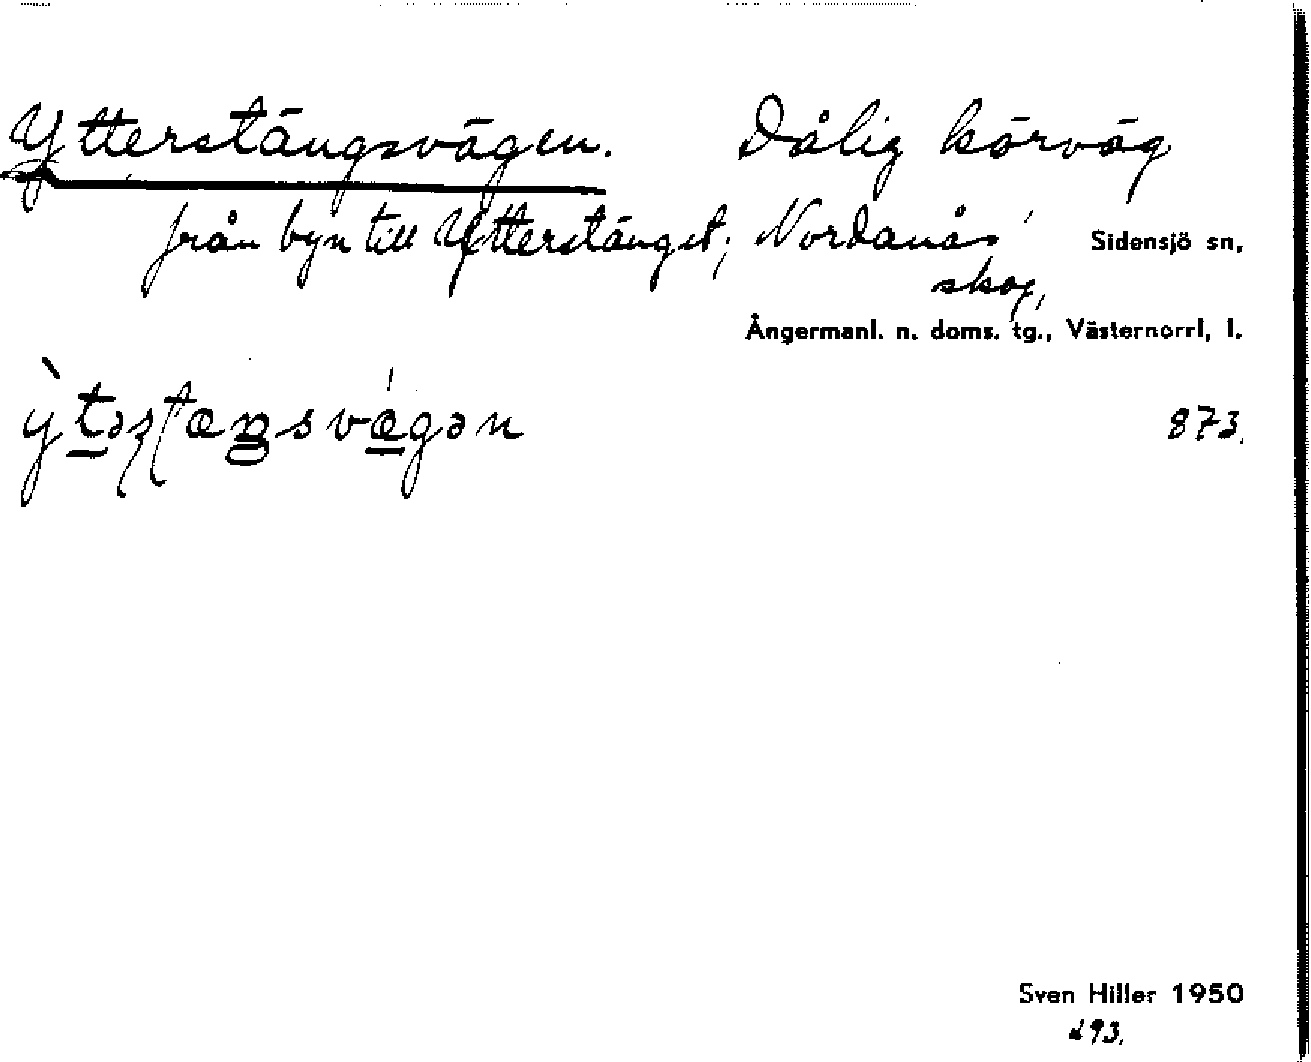 Ytterstängsvägen. Dålig körväg
från byn till Ytterstänget; Nordanås' Sidensjö sn.
skog,
Ångermanl. n. doms. tg., Västernorrl. l.
873.
Sven Hiller 1950
d93.